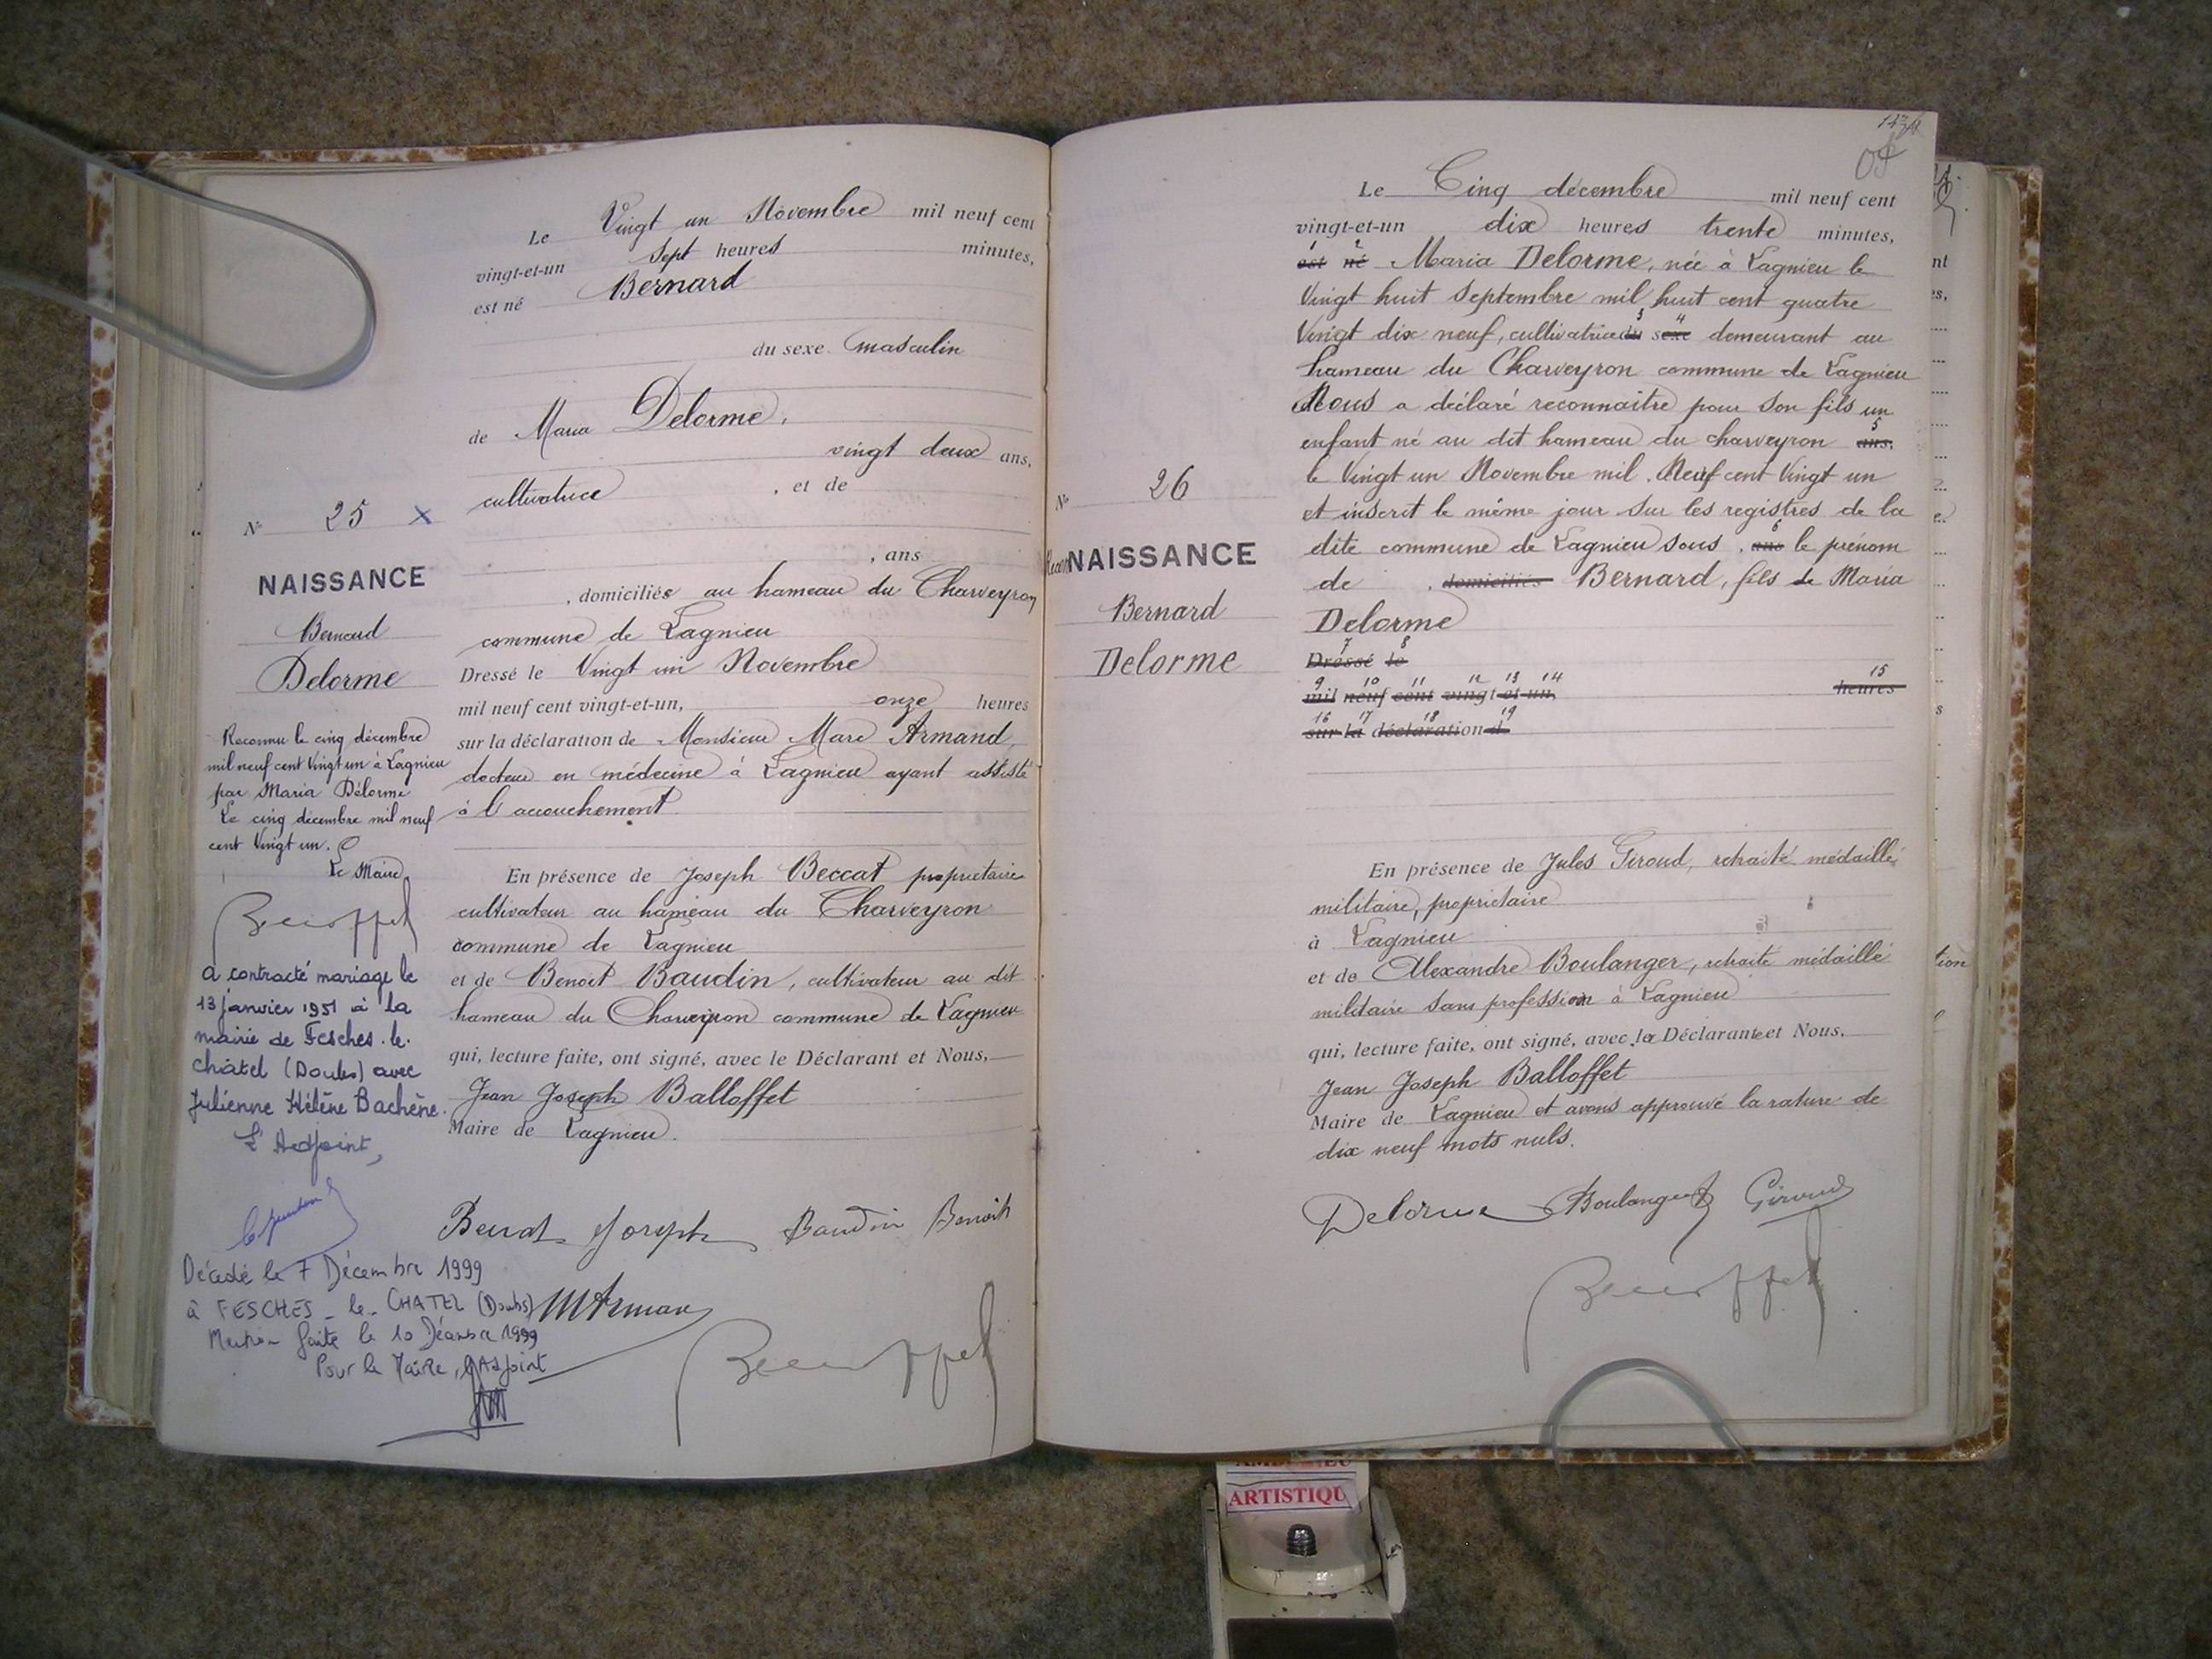 Le Vingt un Novembre mil neuf cent
vingt-et-un sept heures minutes,
est né Bernard
du sexe masculin
de Maria Delorme,
vingt deux ans,
cultivatrice , et de
, ans
, domiciliés au hameau du Charveyron
commune de Lagnieu
Dressé le Vingt un Novembre
mil neuf cent vingt-et-un, onze heures
sur la déclaration de Monsieur Marc Armand,
docteur en médecine à Lagnieu ayant assisté
à l'accouchement
En présence de Joseph Beccat propriétaire
cultivateur au hameau du Charveyron
commune de Lagnieu
et de Benoit Baudin, cultivateur au dit
hameau du Charveyron commune de Lagnieu
qui, lecture faite, ont signé, avec le Déclarant et Nous,
Jean Joseph Balloffet
Maire de Lagnieu.
Joseph Baudin Benoit
MArmand
N° 25 X
NAISSANCE
Bernard
Delorme
Reconnu le cinq décembre
mil neuf cent Vingt un à Lagnieu
par Maria Delorme
Le cinq décembre mil neuf
cent Vingt un.
Le Maire
a contracté mariage le
13 janvier 1951 à la
mairie de Fesches-le-
châtel (Doubs) avec
Julienne Hélène Bachène.
L'Adjoint,
Décédé le 7 Décembre 1999
à FESCHES-le-CHATEL (Doubs)
Mention faite le 10 Décembre 1999
Pour le Maire, l'Adjoint
Le Cinq décembre mil neuf cent
vingt-et-un dix heures trente minutes,
1 2
est né Maria Delorme, née à Lagnieu le
Vingt huit Septembre mil huit cent quatre
3 4
Vingt dix neuf, cultivatrice du sexe demeurant au
hameau du Charveyron commune de Lagnieu
Nous a déclaré reconnaitre pour son fils un
5
enfant né au dit hameau du charveyron ans,
le Vingt un Novembre mil Neuf cent Vingt un
et inscrit le même jour sur les registres de la
6
dite commune de Lagnieu sous , ans le prénom
de , domiciliés Bernard, fils de Maria
Delorme
7 8
Dressé le
9 10 11 12 13 14 15
mil neuf cent vingt-et-un, heures
16 17 18 19
sur la déclaration d
En présence de Jules Giroud, retraité médaillé
militaire, propriétaire
à Lagnieu
et de Alexandre Boulanger, retraité médaillé
militaire sans profession à Lagnieu
qui, lecture faite, ont signé, avec la Déclarante et Nous,
Jean Joseph Balloffet
Maire de Lagnieu et avons approuvé la rature de
dix neuf mots nuls.
Delorme Boulanger Giroud
N° 26
NAISSANCE
Bernard
Delorme
ARTISTIQU